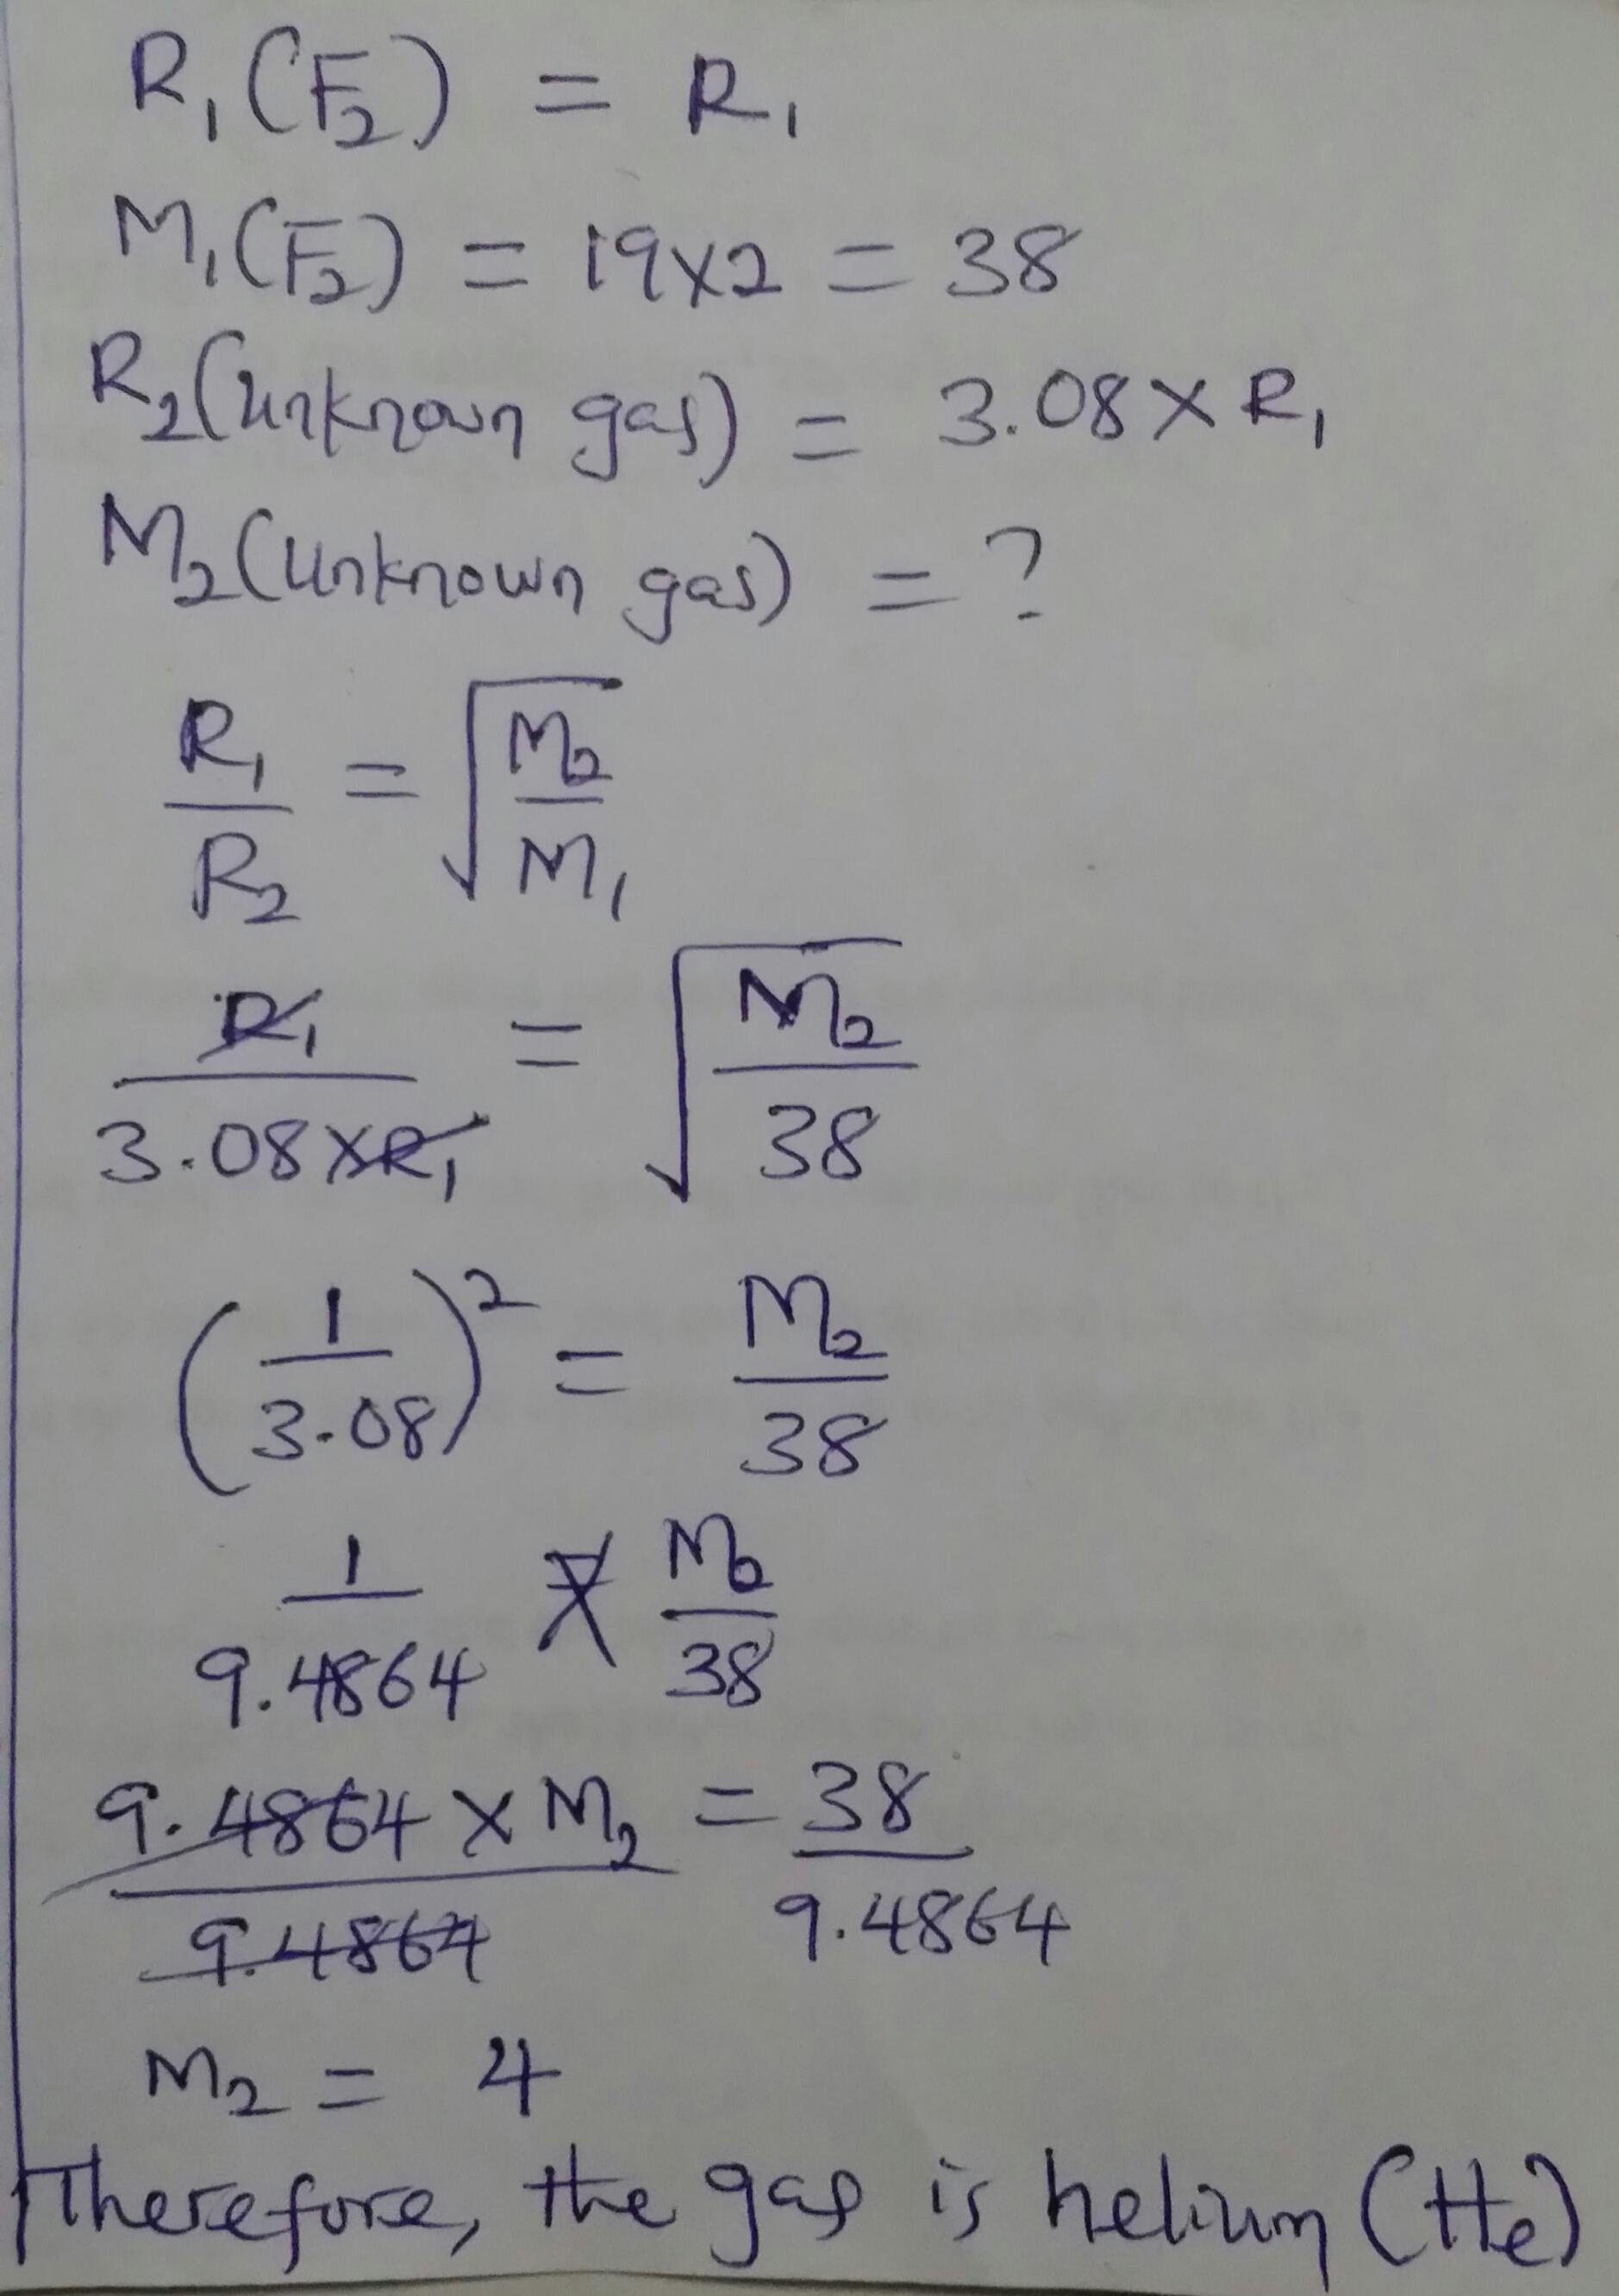 R₁(F₂) = R₁
M₁(F₂) = 19x2 = 38
R₂(unknown gas) = 3.08 x R₁
M₂(unknown gas) = ?
R₁/R₂ = √(M₂/M₁)
R₁/(3.08xR₁) = √(M₂/38)
(1/3.08)² = M₂/38
1/9.4864 = M₂/38
(9.4864 x M₂)/9.4864 = 38/9.4864
M₂ = 4
Therefore, the gas is helium (He)